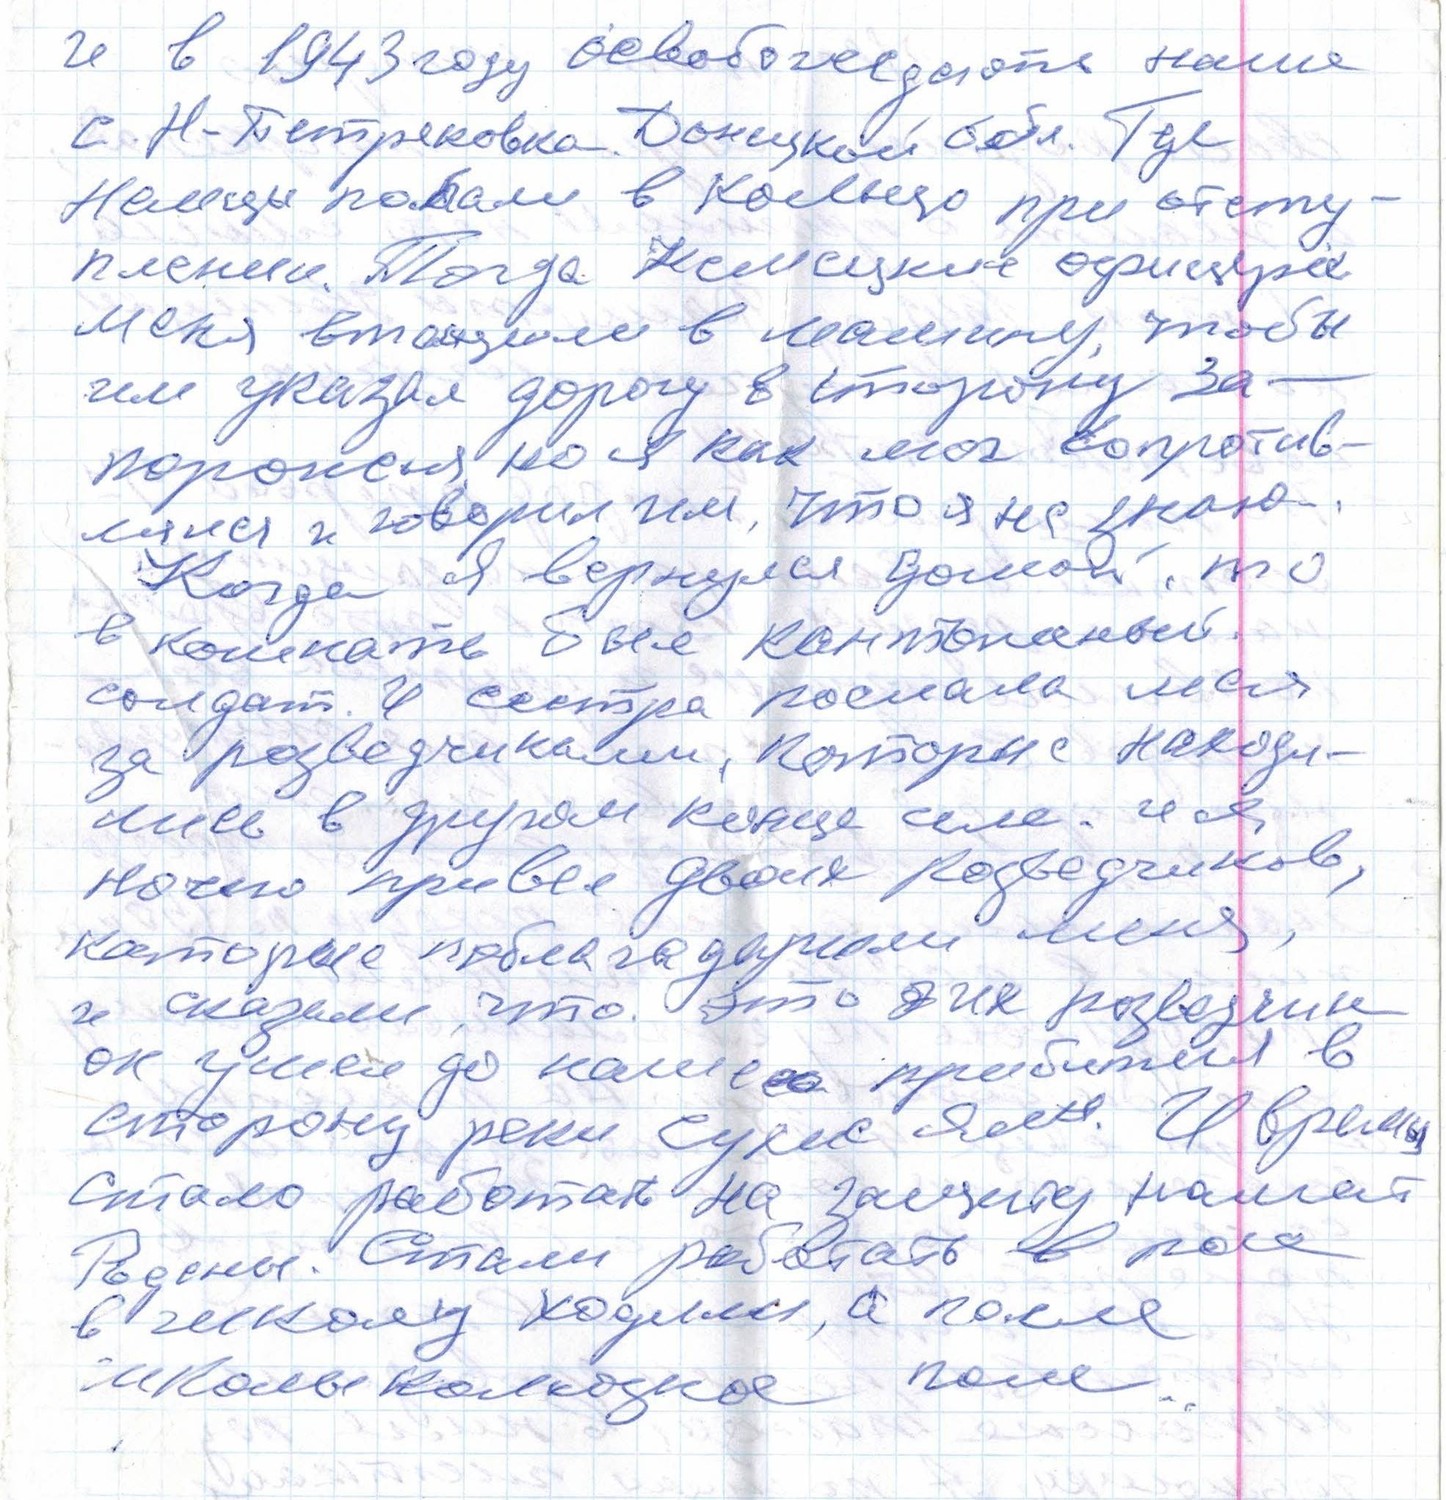 и в 1943 году освобождають наше
с. Н-Петряковка. Донецкой обл. Где
немцы попали в кольцо при отсту-
плении. Тогда немецкие офицеры
меня втащили в машину, чтобы
им указал дорогу в сторону За-
порожья, но я как мог сопротив-
лялся и говорил им, что я не знаю.
Когда я вернулся домой, то
в комнать был контоженый
солдат. И сестра послала меня
за розведчиками, которые находи-
лись в другом конце села. и я
ночю привел двоих розведчиков,
которые поблагадарили меня,
и сказали, что. это их розведчик
он ушел до нашего прибытия в
сторону реки Сухие Ялы. И время
стало работать на защиту нашей
Родены. Стали работать в поле
в школу ходили, а после
школы колхозное поле.